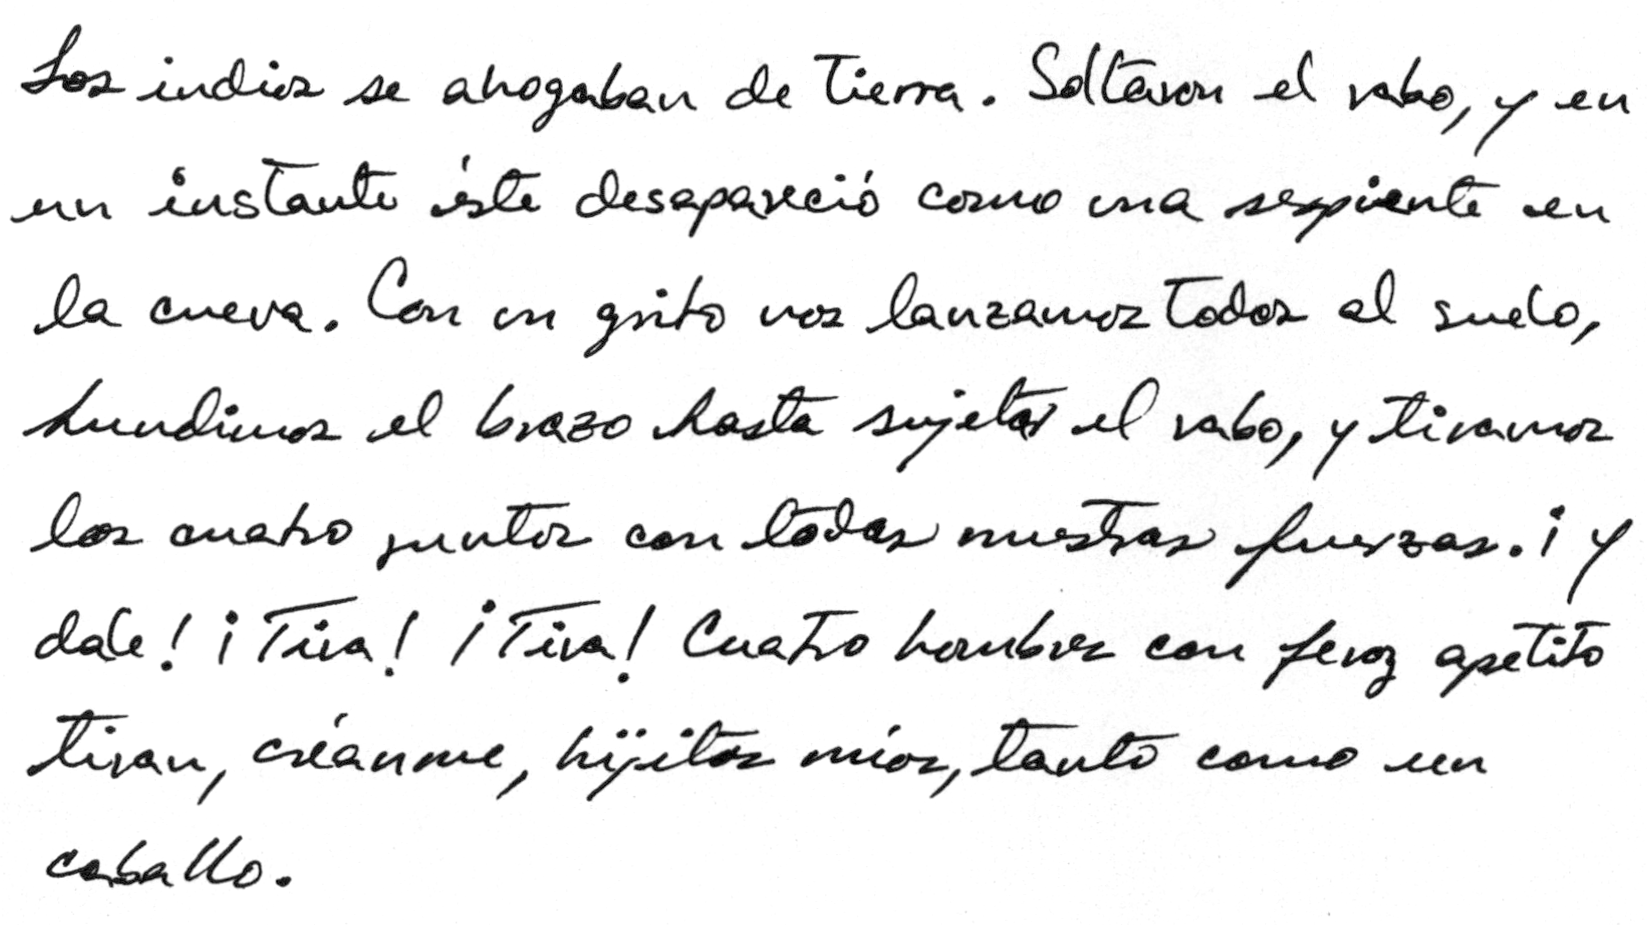 Los indios se ahogaban de tierra. Soltaron el rabo, y en
un instante éste desapareció como una serpiente en
la cueva. Con un grito nos lanzamos todos al suelo,
hundimos el brazo hasta sujetar el rabo, y tiramos
los cuatro juntos con todas nuestras fuerzas. ¡Y
dale! ¡Tira! ¡Tira! Cuatro hombres con feroz apetito
tiran, créanme, hijitos míos, tanto como un
caballo.